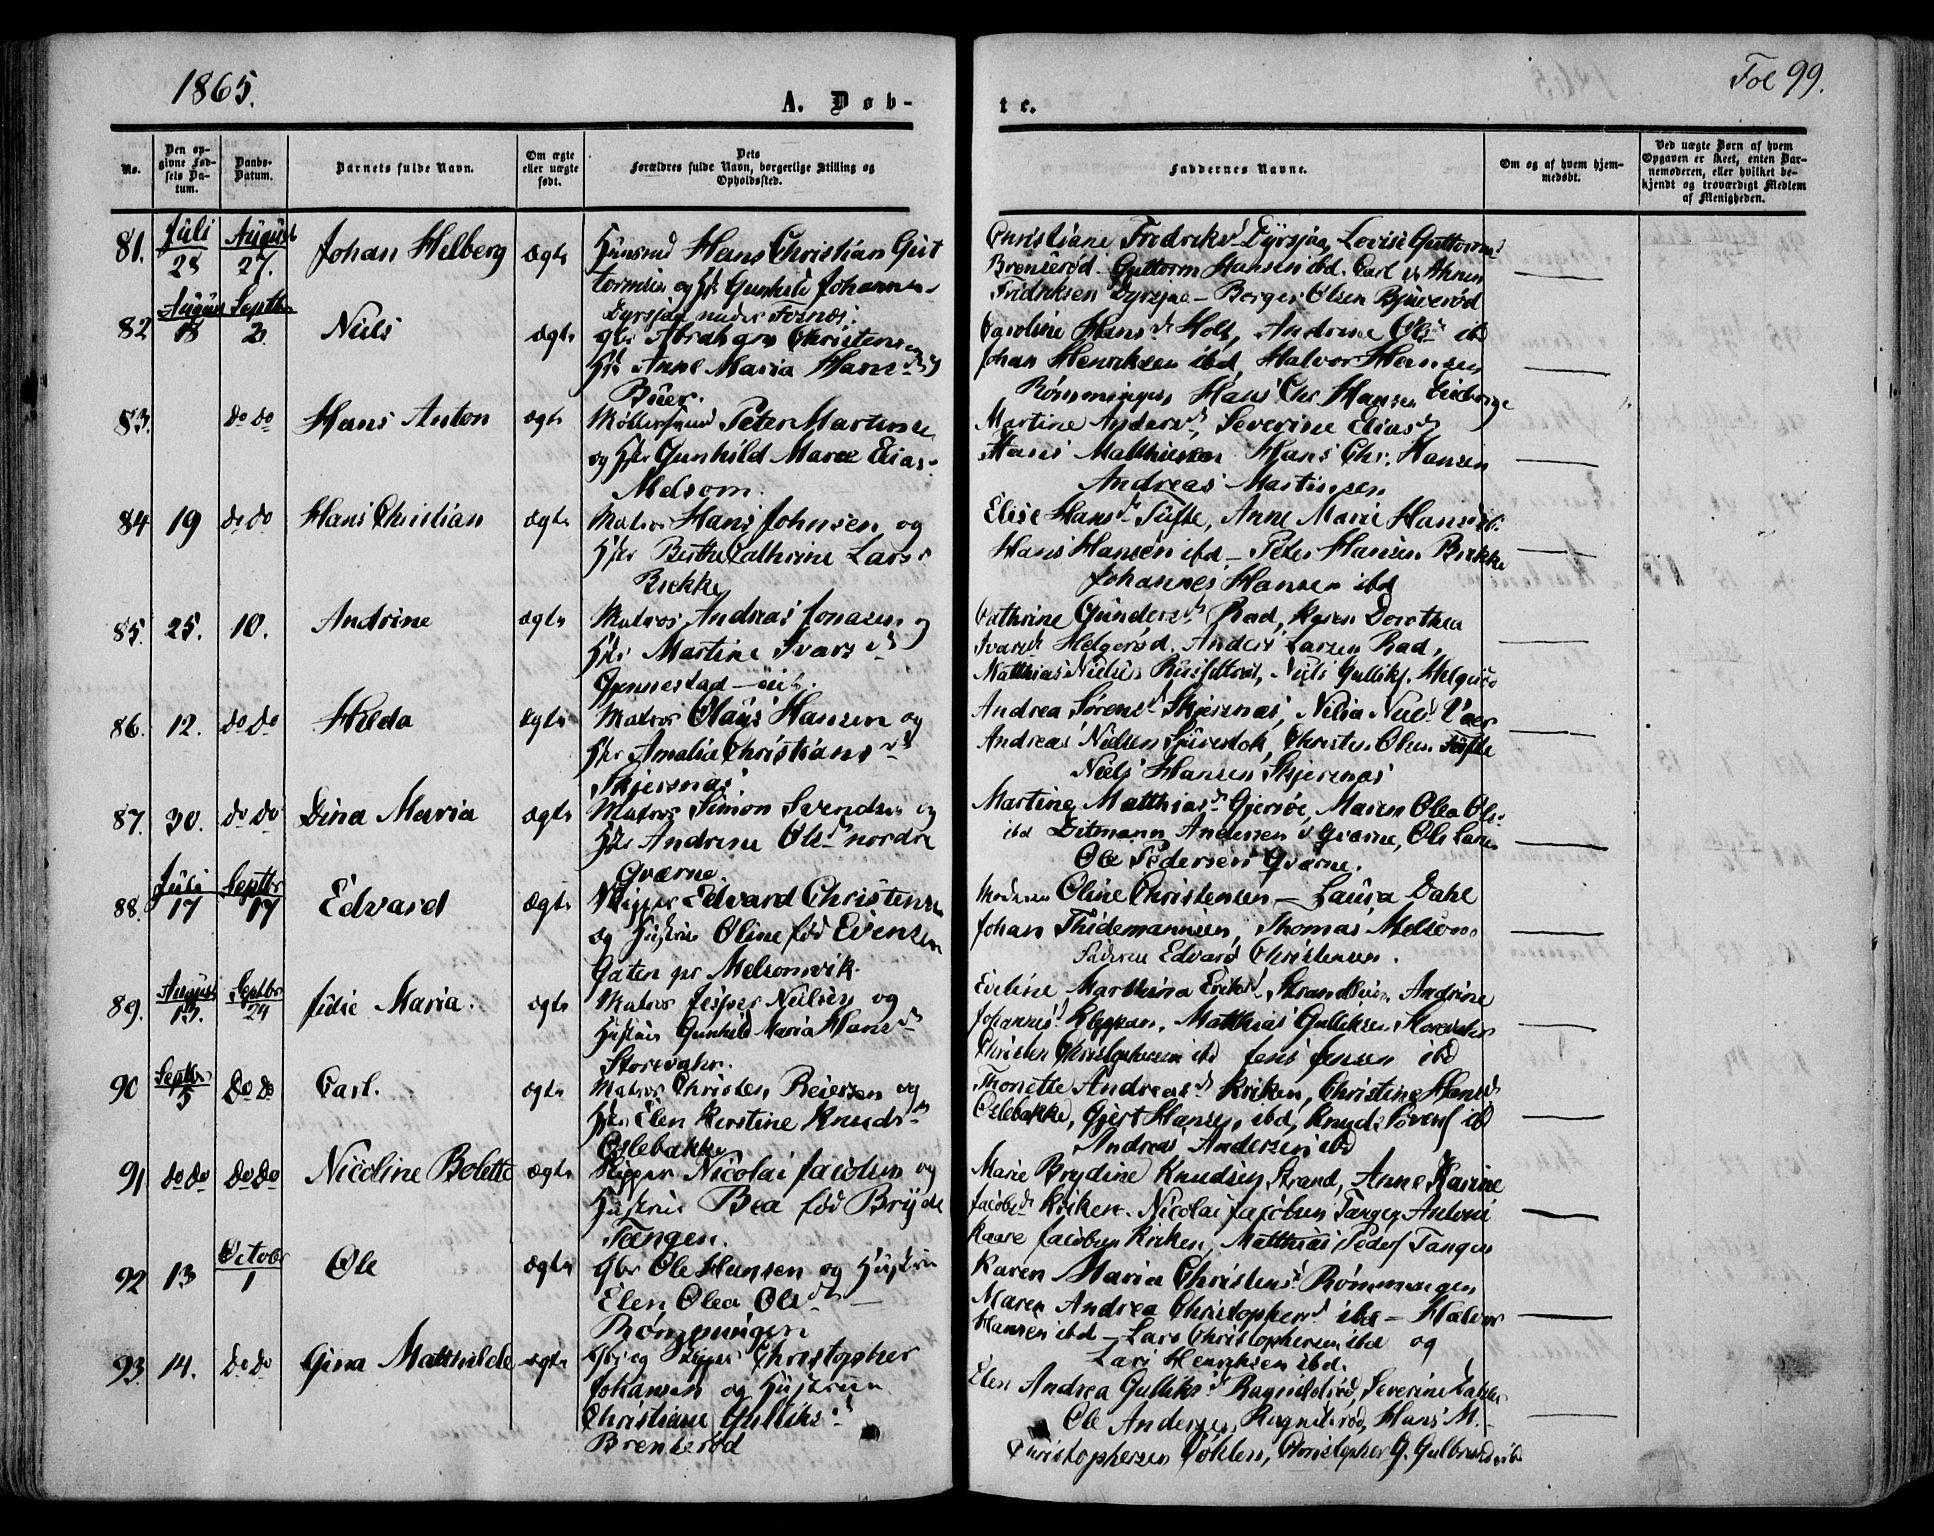 1865.
A. Døb-
te.
Fol 99.
No.
Den op-
givne Fød-
sels Da-
tum.
Daabs-
Datum.
Barnets fulde Navn.
Om ægte
eller uægte
født.
Dets
Forældres fulde Navn, borgerlige Stilling og
Opholdssted.
Faddernes Navne.
Om og af hvem hjem-
medøbt.
Ved uægte Børn af hvem
Opgaven er skeet, enten Bar-
nemoderen, eller hvilket be-
kjendt og troværdigt Medlem
af Menigheden.
81. Juli 28 August 27. Johan Helberg ægte Hans Christian Gut
tormsen og Gunhild Johanne
Dyrsjaa under Fornæs.
Christiane Fredriksd Dyrsjaa, Lovise Guttormsd
Brenserød. Guttorm Hansen ibd. Carl
Fridriksen Dyrsjaa - Borger Olsen
82 August 18 Septbr 2. Niels ægte Gbr Abraham Christensen
Anne Maria Hansd
Buer.
Caroline Hansd Holt, Andrine Olsd ibd
Johan Henriksen ibd, Halvor Hansen
Rømmingen Hans Chr. Hansen
83. do do Hans Anton ægte Peter Martinsen
og Hstr Gunhild Maree Elias-
Melsom.
Martine Andersd, Severine Eliasd
Hans Matthiesen Hans Chr. Hansen
Andreas Martinsen
84 19 do do Hans Christian ægte Matros Hans Johnsen og
Hstr Berthe Cathrine Lars
Brekke
Elise Hansd Tufte, Anne Marie Hansd
Hans Hansen ibd - Peter Hansen Brekke
Johannes Hansen ibd
85. 25. 10. Andrine ægte Matros Andreas Jonasen og
Hstr Martine Ivarsd
Gjennestad
Cathrine Gundersd Rad, Karen Dorothea
Ivarsd Helgerød. Anders Larsen Rad,
Matthias Nielsen Niels Gulliks.
86. 12. do do Hilda ægte Matros Olaus Hansen og
Hstr Amalia Christiansd
Skjersnæs.
Andrea Sørensd Skjersnæs, Nilia Nielsd
Andreas Nielsen Christen Olsen Tufte
Niels Hansen Skjersnæs
87. 30. do do Dina Maria ægte Matros Simon Svendsen og
Hstr Andrine Olsd nordre
Gværne.
Martine Matthiasd Gjersøe, Maren Olea Ols-
ibd Ditmann Andersen Gværne, Ole Lars
Ole Pedersen Gværne.
88. Juli 17 Septbr 17 Edvard ægte Skipper Edvard Christensen
og Hustrue Oline fød Evensen
Gaten pr Melsomvik.
Moderen Oline Christensen - Laura Dahl
Johan Thidemannsen, Thomas Melsom
Faderen Edvard Christensen.
89. August 13. Septbr 24 Julie Maria. ægte Matros Jesper Nielsen og
Hustrue Gunhild Maria Hansd
Storevahr.
Eveline Marthina Eriksd Andrine
Johannesd Kleppan, Matthias Gulliksen Storevahr
Christen Christophersen ibd Jens Jensen ibd
90 Septbr 5 do do Carl. ægte Matros Christen Reiersen og
Hstr Elen Kerstine Knudsd
Oslebakke
Thonette Andreasd Kriken, Christine Hansd
Oslebakke, Gjert Hansen ibd, Knud ibd
Andreas Andersen ibd
91 do do do do Nicoline Bolette ægte Skipper Nicolai Jacobsen og
Hustrue Bea fød Bryde
Tangen.
Marie Brydine Knudsen Strand, Anne Karine
Jacobsd Kriken. Nicolai Jacobsen Tangen Antoni
Kaare Jacobsen Kriken, Matthias Peders Tangen
92 13 October 1 Ole ægte Gbr Ole Hansen og Hustrue
Elen Olea Olsd
Rømmingen
Karen Maria Christensd Rømmingen
Maren Andrea Christophersd ibd - Halvor
Hansen ibd - Lars Christophersen ibd og
Lars Henriksen ibd.
93. 14. do do Gina Mathilde ægte Gbr og Skipper Christopher
Johansen og Hustrue
Christiane Gulliksd
Brenserød
Elen Andrea Gulliksd Ragnildrød, Severine
Ole Andersen Ragnildrød, Hans M.
Christophersen Christopher G.